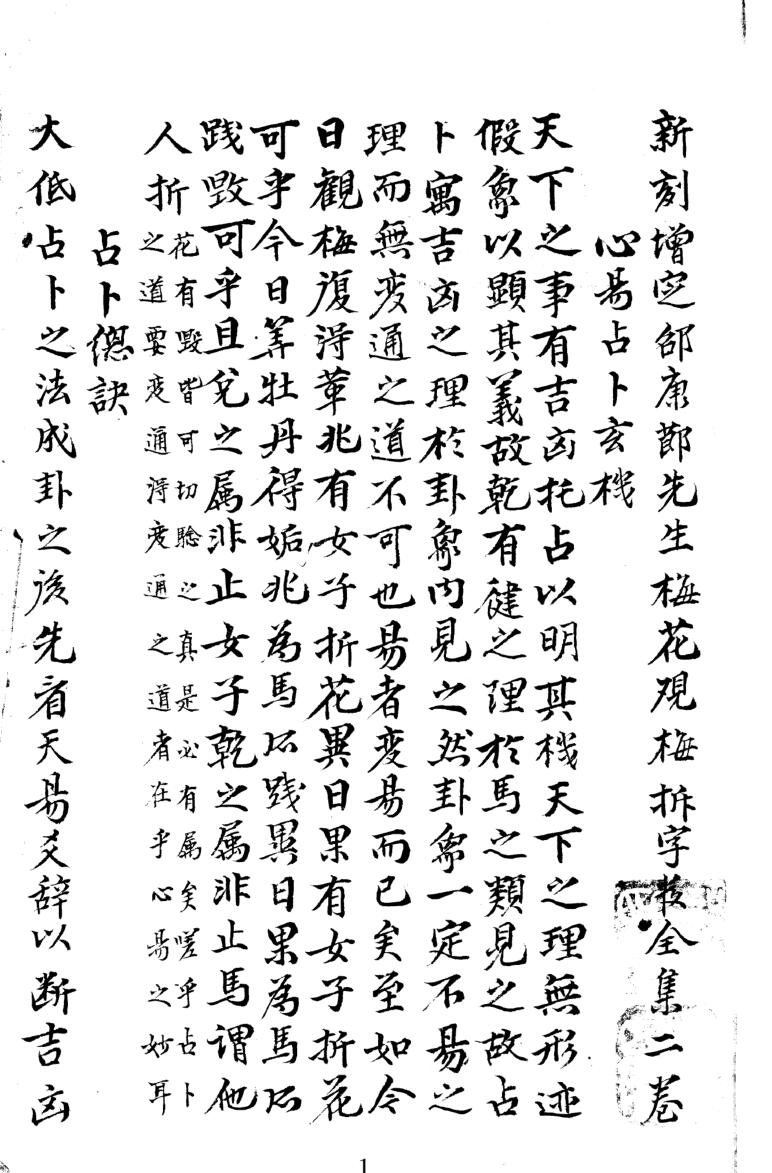 新刻增定邵康節先生梅花观梅拆字数全集二卷
心易占卜玄機
天下之事有吉凶托占以明其機天下之理無形迹
假象以顯其義故乾有健之理於馬之類見之故占
卜寓吉凶之理於卦象內見之然卦象一定不易之
理而無变通之道不可也易者变易而已矣至如今
日觀梅復得革兆有女子折花異日果有女子折花
可乎今日筭牡丹得姤兆為馬所践異日果為馬所
践毀可乎且兌之属非止女子乾之属非止馬謂他
人折花有毀皆可切驗之真是必有属矣嗟乎占卜
之道要变通得变通之道者在乎心易之妙耳
占卜總訣
大低占卜之法成卦之後先看天易爻辞以断吉凶
1